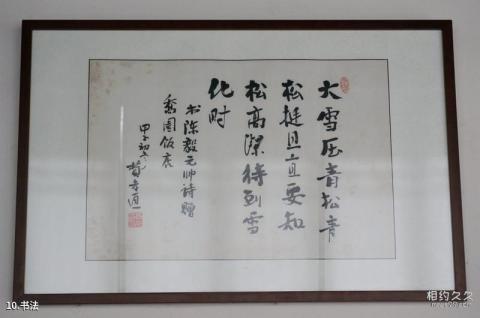 大雪压青松青
松挺且直要知
松高潔待到雪
化时
书陈毅元帅詩贈
黍園饭店
甲子初冬
10.书法
相约久久